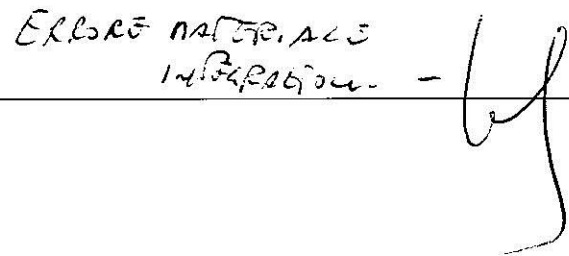 ERRORE MATERIALE
INTEGRAZIONE -